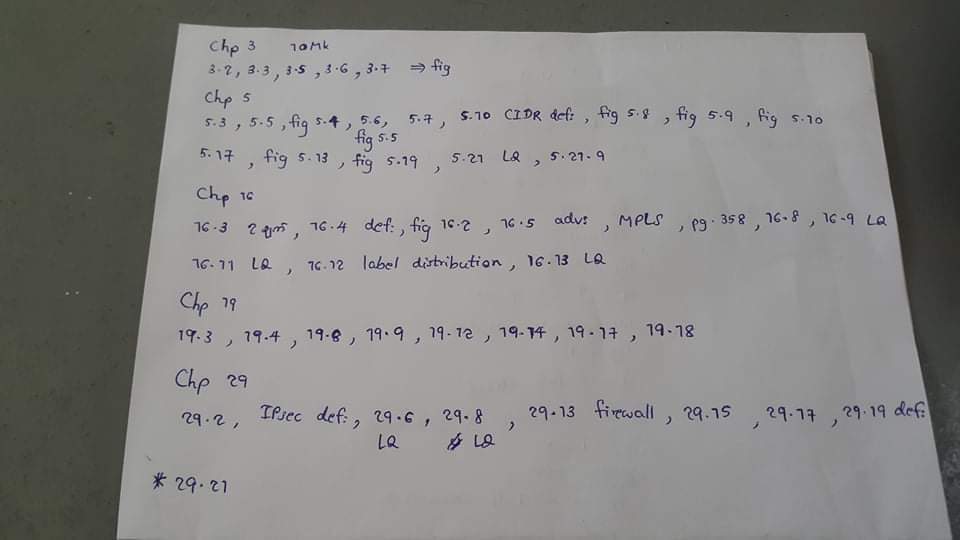 Chp 3 10Mk
3.2, 3.3, 3.5, 3.6, 3.7 ⇒ fig
Chp 5
5.3, 5.5, fig 5.4, 5.6, 5.7, 5.10 CIDR def:, fig 5.8, fig 5.9, fig 5.10
fig 5.5
5.17, fig 5.13, fig 5.19, 5.21 LQ, 5.21.9
Chp 16
16.3 2, 16.4 def:, fig 16.2, 16.5 adv:, MPLS, pg.358, 16.8, 16.9 LQ
16.11 LQ, 16.12 label distribution, 16.13 LQ
Chp 19
19.3, 19.4, 19.8, 19.9, 19.12, 19.14, 19.17, 19.18
Chp 29
29.2, IPsec def:, 29.6, 29.8, 29.13 firewall, 29.15, 29.17, 29.19 def:
LQ LQ
* 29.21